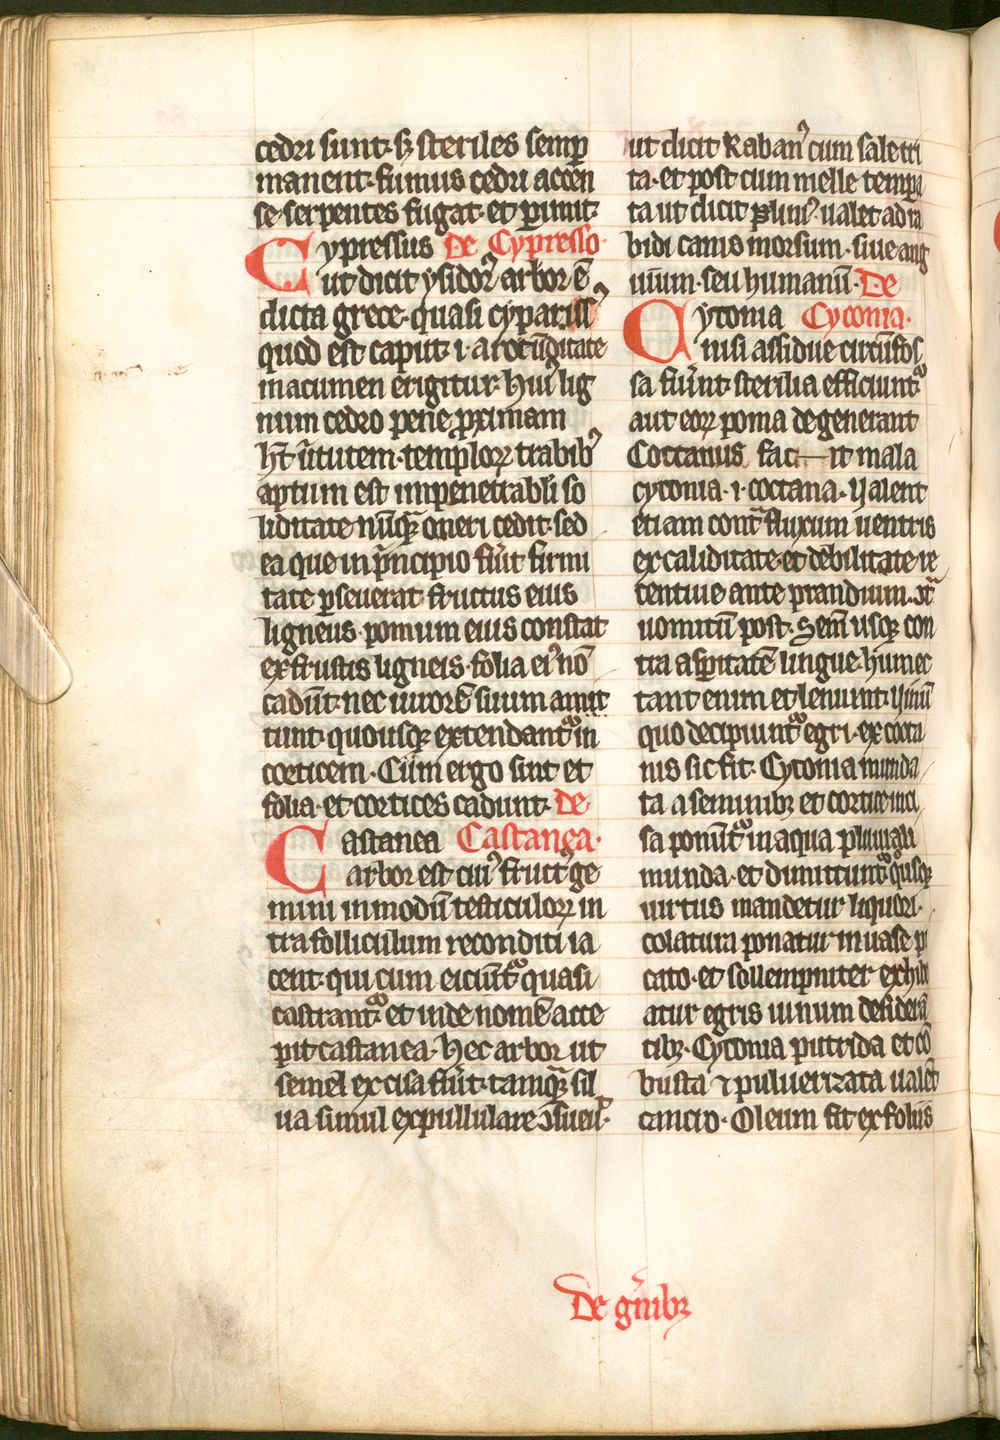 cedri sunt· sꝫ steriles semꝑ
manent· fumus cedri accen
se serpentes fugat· et ꝑimit·
Cypressus De Cypresso·
ut dicit ysidorꝰ arbor ē
dicta grece· quasi cyparissꝰ
quod est caput· i· a rotūditate
in acumen erigitur· huiꝰ lig
num cedro pene ꝓximam
ht̄ ūtutem· temploꝝ trabibꝰ
aptum est impenetrabli so
liditate nūqᷓ oneri cedit· sed
ea que in pͥncipio fūt firmi
tate ꝑseuerat· fructus eius
ligneus· pomum eius constat
ex frustis ligneis· folia eiꝰ nō
cadūt· nec uirorē suum amit
tunt· quousqꝫ extendantᷣ in
corticem· Cum ergo sint et
folia et cortices cadunt· De
Castanea Castanea·
arbor est cuiꝰ fructꝰ ge
mini in modū testiculoꝝ in
tra folliculum reconditi ia
cent· qui cum eiciūtᷣ quasi
castrantᷣ et inde nomē acce
pit castanea· hec arbor ut
semel excisa fūit· tamqᷓ sil
ua simul expullulare ɔsueuͥ·
ut dicit Rabanꝰ cum sale tri
ta· et post cum melle tempa
ta ut dicit pliniꝰ· ualet ad ra
bidi canis morsum· siue ang
uium· seu humanū· De
Cytonia Cyconia·
nisi assidue circūfos
sa fiūnt sterilia efficiuntᷣ
aut eoꝝ poma degenerant
Coctanus fac—it mala
cytonia· i· coctana· Ualent
etiam contᷓ fluxum uentris
ex caliditate et debilitate re
tentiue ante prandium· Ɔtᷓ
uomitū post· Semē usqꝫ con
tra asꝑitatē lingue· humec
tant enim et leniunt· Uinū
quo decipiuntᷣ egri· ex cocta
nis sic fit· Cytonia munda
ta a seminibꝫ et cortice inci
sa ponūtᷣ in aqua pluuiali
munda· et dimittuntᷣ qͦusqꝫ
uirtus mandetur liquori·
colatura ponatur in uase pi
cato· et sollempniter exhibe
atur egris uinum desiderā
tibꝫ· Cytonia putrida et cō
busta ⁊ puluerizata ualēt
cancro· Oleum fit ex foliis
De gͣnibꝫ